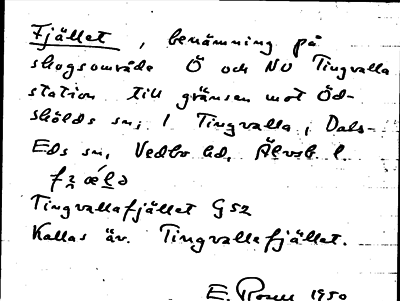 Fjället, benämning på
skogsområde Ö och NO Tingvalla
station till gränsen mot Öd-
skölds sn; i Tingvalla, Dals-
Eds sn, Vedbo hd, Älvsb l.
Tingvallafjället G52
Kallas äv. Tingvallafjället.
E. 1950